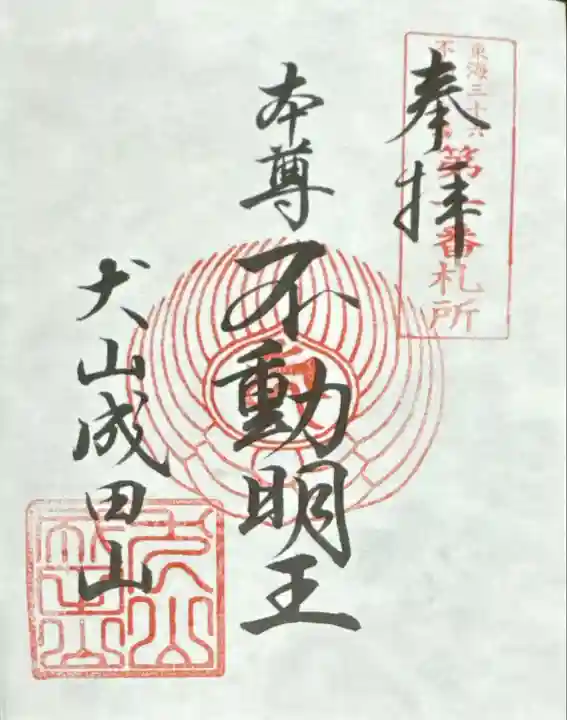 奉拝
東海三十六
不
第一番札所
本尊
不動明王
犬山成田山